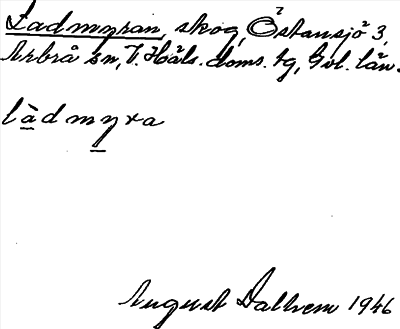 Ladmyran, skog, Östansjö 3,
Arbrå sn, V. Häls. doms. tg, Gvl. län.
làdmyra
August Dalhem 1946